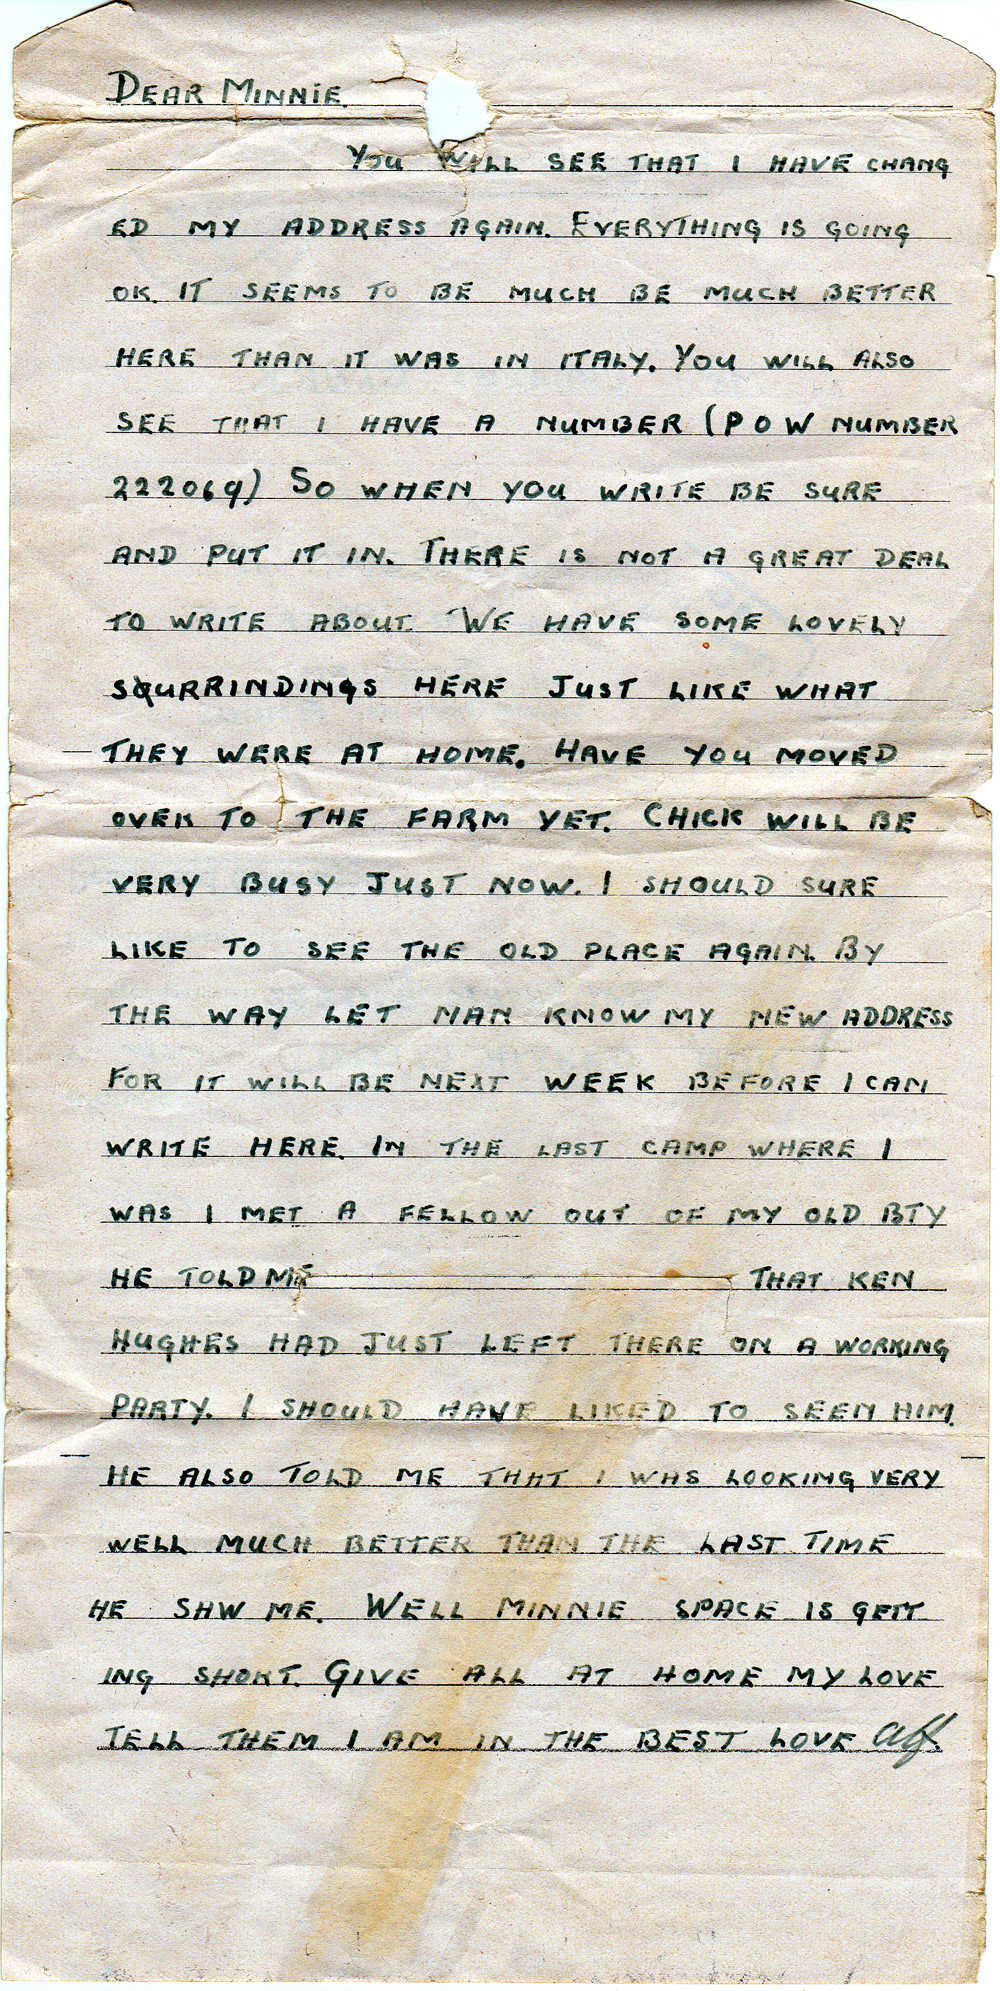 DEAR MINNIE.
YOU WILL SEE THAT I HAVE CHANG
ED MY ADDRESS AGAIN. EVERYTHING IS GOING
OK. IT SEEMS TO BE MUCH BE MUCH BETTER
HERE THAN IT WAS IN ITALY. YOU WILL ALSO
SEE THAT I HAVE A NUMBER (POW NUMBER
222069) SO WHEN YOU WRITE BE SURE
AND PUT IT IN. THERE IS NOT A GREAT DEAL
TO WRITE ABOUT. WE HAVE SOME LOVELY
SOURRINDINGS HERE JUST LIKE WHAT
THEY WERE AT HOME. HAVE YOU MOVED
OVER TO THE FARM YET. CHICK WILL BE
VERY BUSY JUST NOW. I SHOULD SURE
LIKE TO SEE THE OLD PLACE AGAIN. BY
THE WAY LET NAN KNOW MY NEW ADDRESS
FOR IT WILL BE NEXT WEEK BEFORE I CAN
WRITE HERE. IN THE LAST CAMP WHERE I
WAS I MET A FELLOW OUT OF MY OLD BTY
HE TOLD ME THAT KEN
HUGHES HAD JUST LEFT THERE ON A WORKING
PARTY. I SHOULD HAVE LIKED TO SEEN HIM.
HE ALSO TOLD ME THAT I WAS LOOKING VERY
WELL MUCH BETTER THAN THE LAST TIME
HE SAW ME. WELL MINNIE SPACE IS GETT
ING SHORT. GIVE ALL AT HOME MY LOVE
TELL THEM I AM IN THE BEST LOVE Alf.